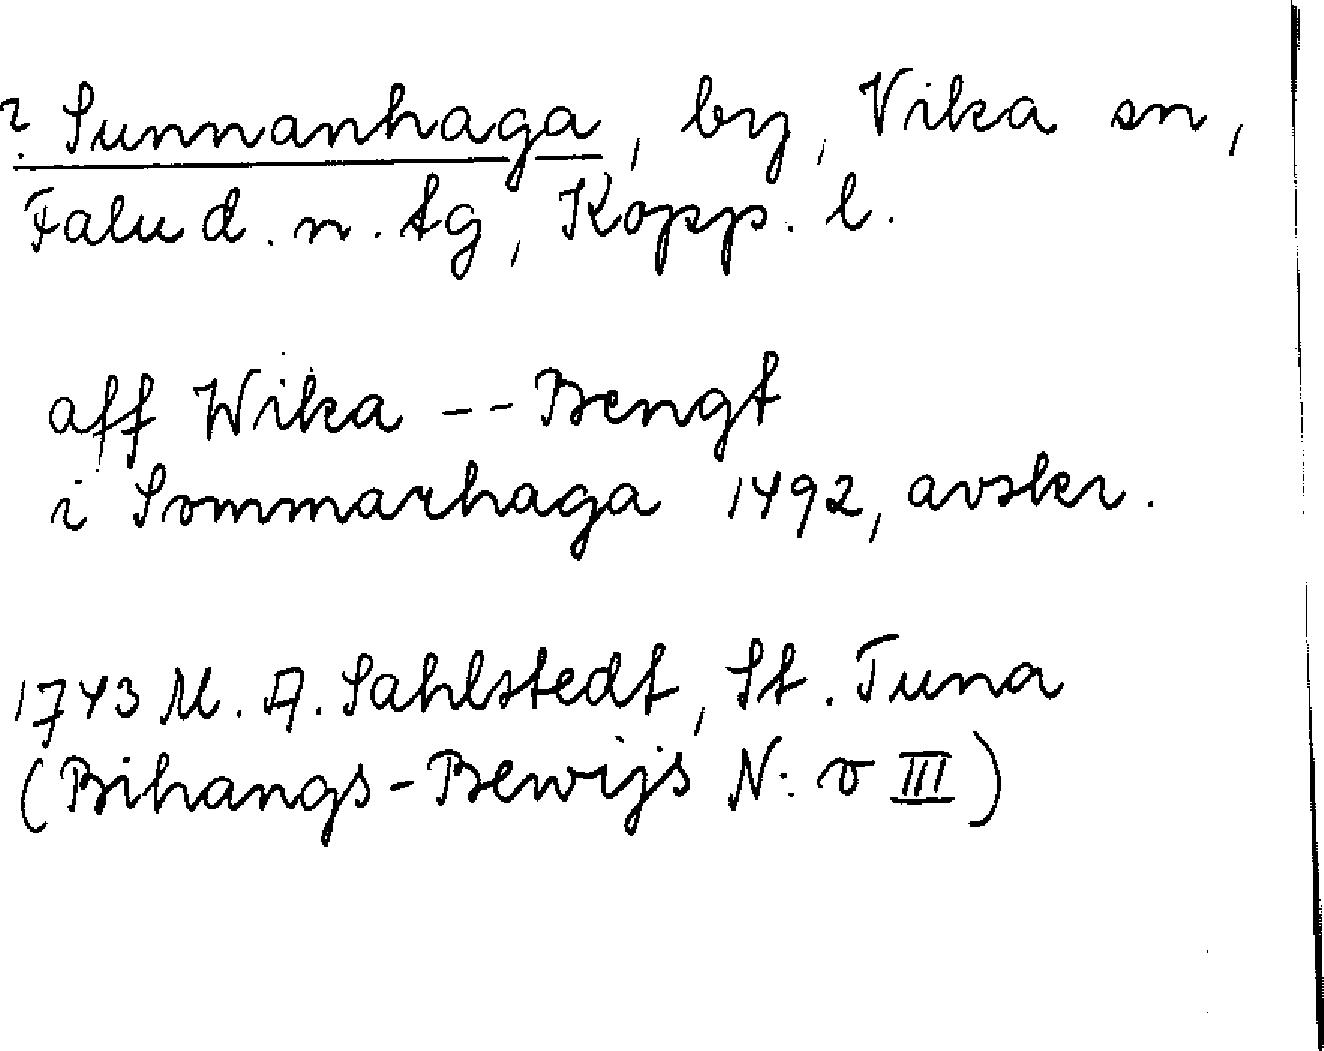 ? Sunnanhaga, by, Vika sn,
Falu d. n. tg, Kopp. l.
aff Wika -- Bengt
i Sommarhaga 1492, avskr.
1743 M. A. Sahlstedt, St. Tuna
(Bihangs-Bewijs N:o III)